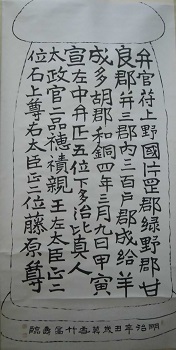 弁官符上野國片罡郡緑野郡甘
良郡并三郡内三百戸郡成給羊
成多胡郡和銅四年三月九日甲寅
宣左中弁正五位下多治比真人
太政官二品穂積親王左太臣正二
位石上尊右太臣正二位藤原尊
明治辛丑